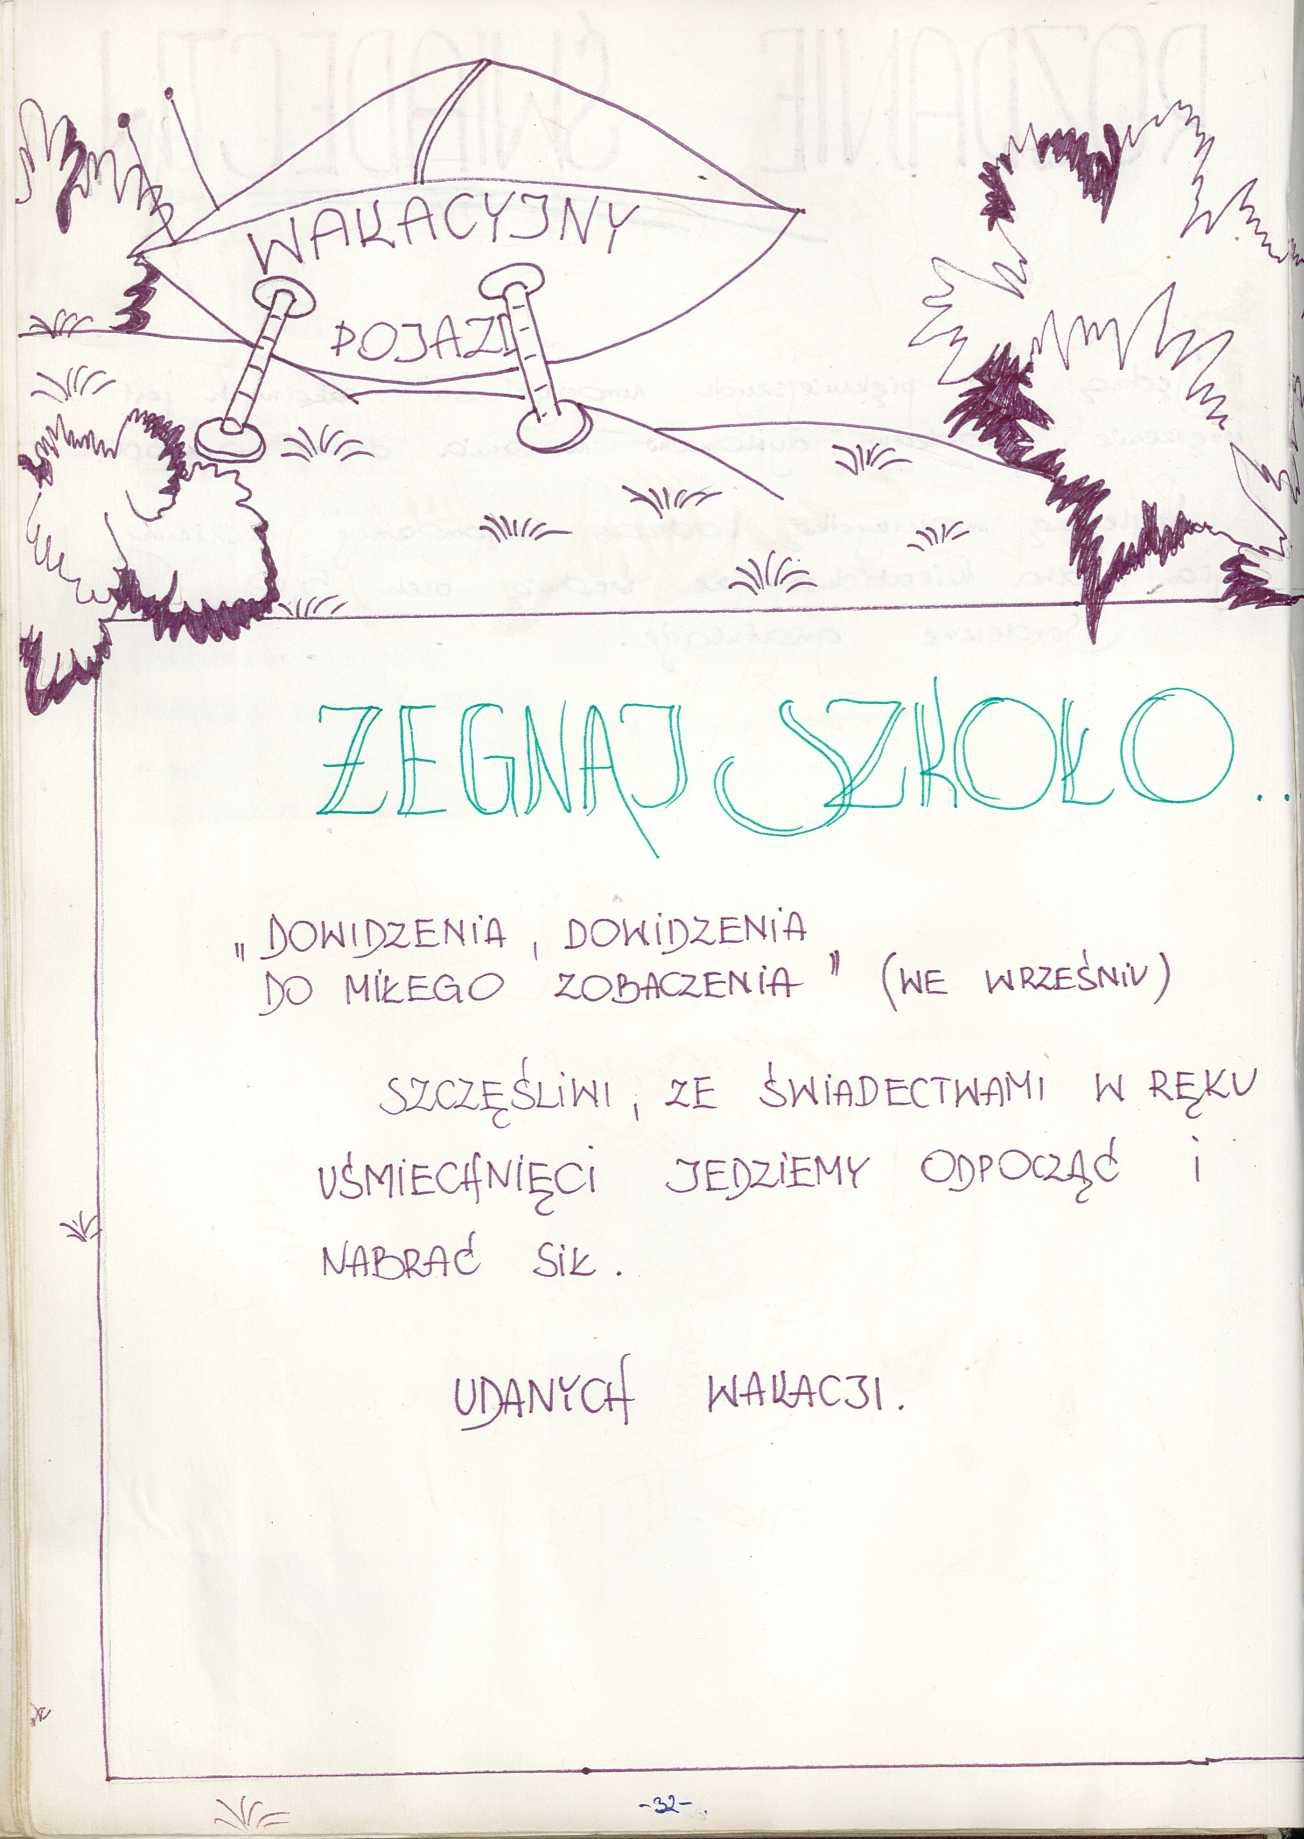 WAKACYJNY
POJAZD
ŻEGNAJ SZKOŁO...
"DOWIDZENIA, DOWIDZENIA
DO MIŁEGO ZOBACZENIA" (WE WRZEŚNIU)
SZCZĘŚLIWI, ZE ŚWIADECTWAMI W RĘKU
UŚMIECHNIĘCI JEDZIEMY ODPOCZĄĆ I
NABRAĆ SIŁ.
UDANYCH WAKACJI.
-32-